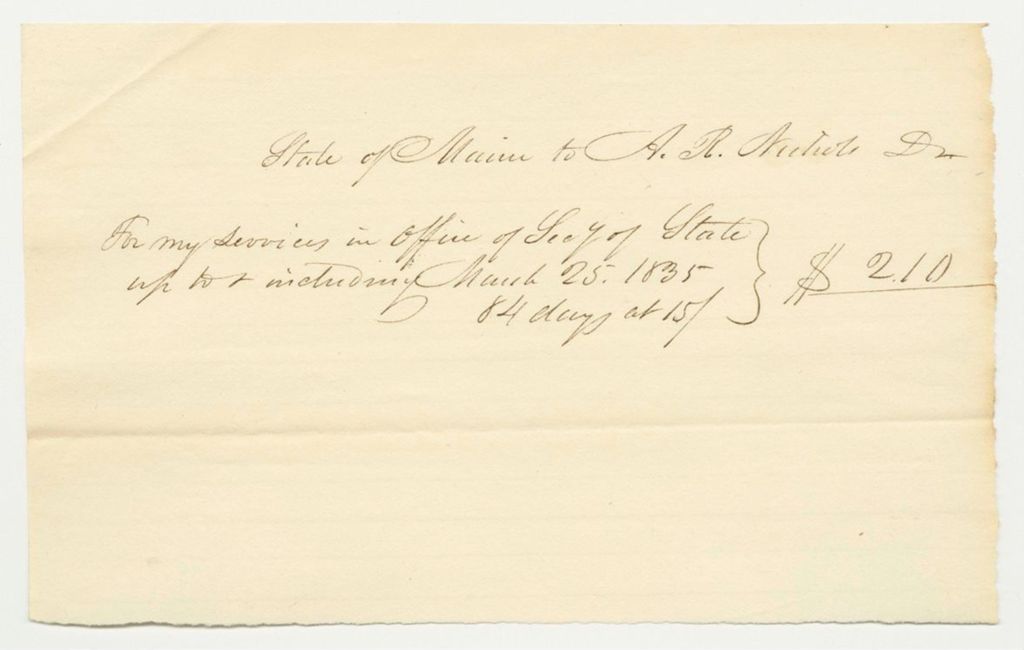 State of Maine to A. R. Nichols Dr
For my services in Office of Secy of State
up to & including March 25. 1835 $ 210
84 days at 15/